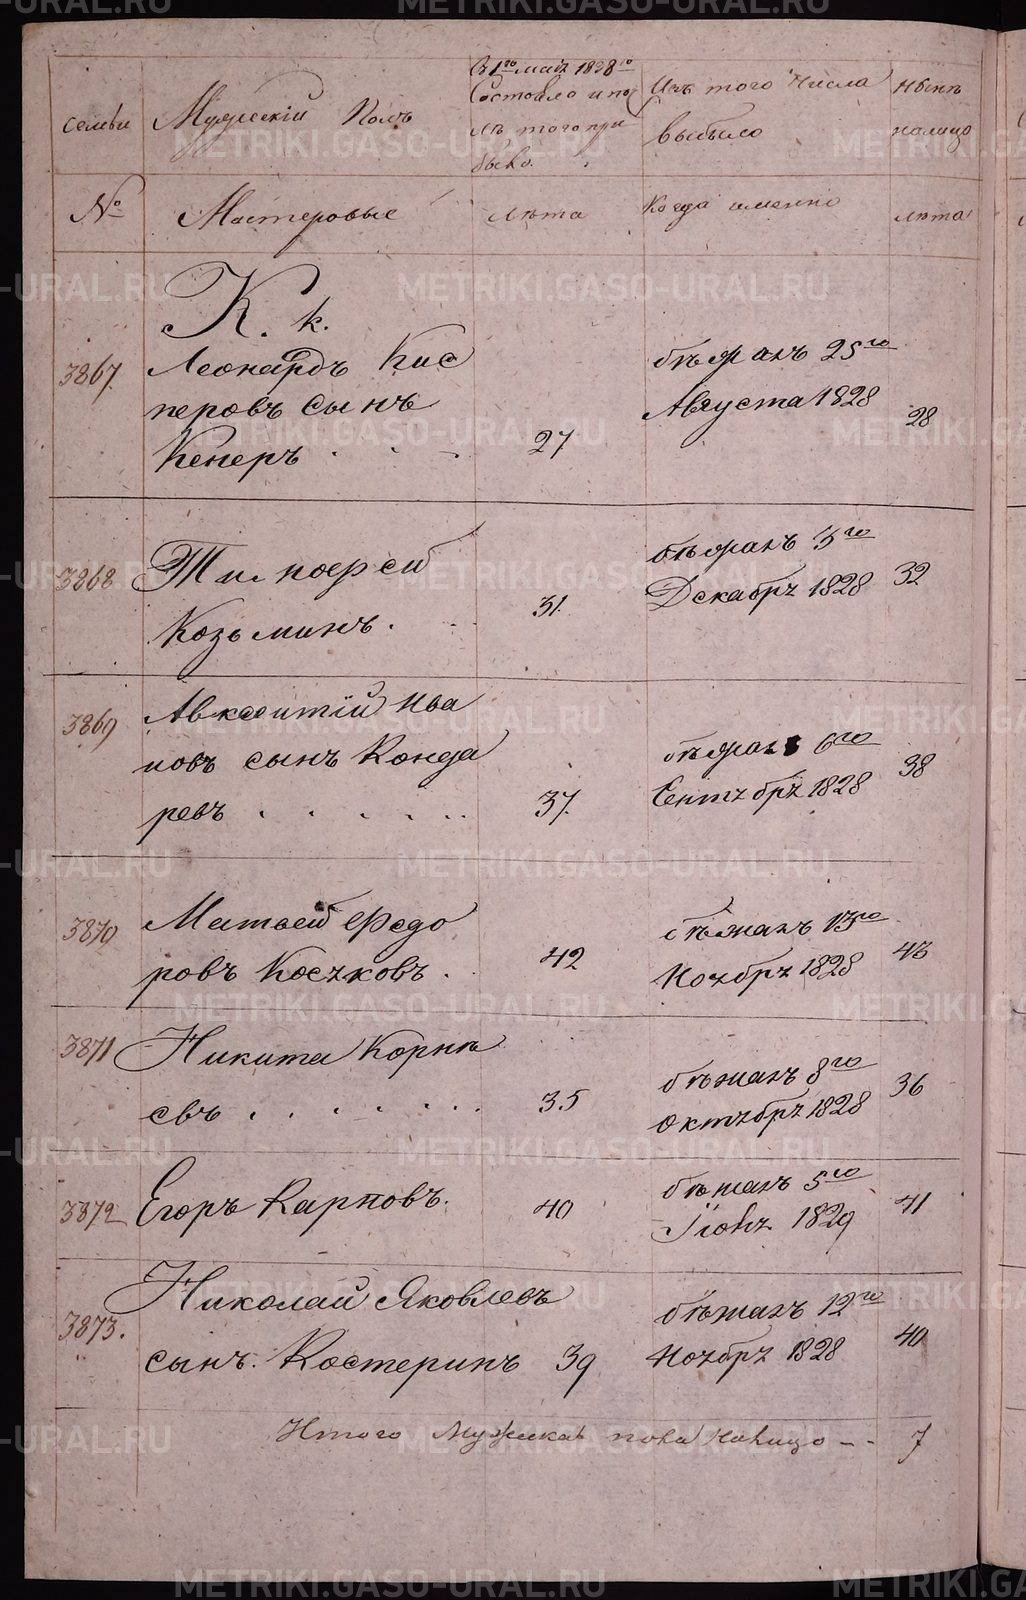 В 1го маiя 1828го
семьи
Мужескiй Полъ
Состояло и пос
лѣ того при
было.
Изъ того Числа
выбыло
Нынѣ
налицо
№
Мастеровые
Лѣта
Когда именно
лѣта
К. к.
3867.
Леонардъ Кис
перовъ сынъ
Кенеръ . . .
27
бѣжалъ 25го
Августа 1828
28
3868
Тимофей
Козьминъ.
31.
бѣжалъ 3го
Декабря 1828
32
3869
Авксентiй Ива
новъ сынъ Конда
ревъ . . . . . .
37.
бѣжалъ 6го
Сентября 1828
38
3870
Матвей Федо
ровъ Косяковъ .
42
бѣжалъ 13го
Ноября 1828
43
3871
Никита Корнѣ
евъ . . . . . . .
35
бѣжалъ 8го
октября 1828
36
3872
Егоръ Карповъ.
40
бѣжалъ 5го
Iюня 1829
41
3873.
Николай Яковлевъ
сынъ. Костеринъ
39
бѣжалъ 12го
Ноября 1828
40
Итого Мужска пола налицо -- 7
METRIKI.GASO-URAL.RU